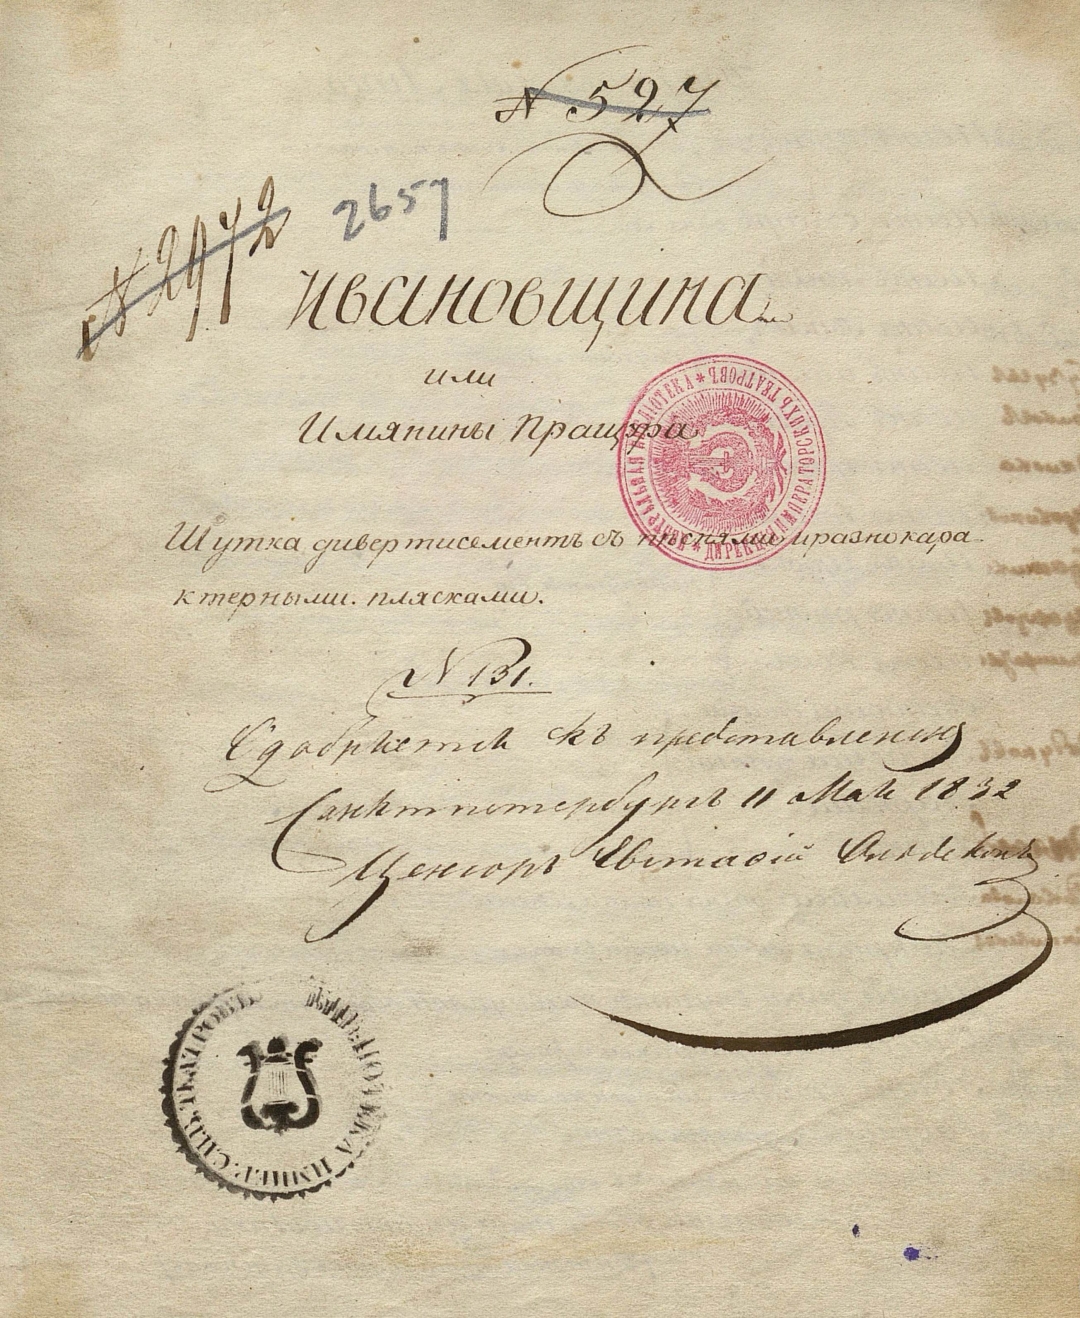 № 527
№ 2972
2657
Ивановщина
или
Имянины Пращура
ЦЕНТРАЛЬНАЯ БИБЛІОТЕКА * ДИРЕКЦІИ ИМПЕРАТОРСКИХЪ ТЕАТРОВЪ *
Шутка дивертисементъ съ пѣснями и разнокара
ктерными. плясками.
№ 131.
Одобряется къ представленію
Санктпетербургъ 11 Мая 1832
Ценсоръ Евстафій Ольдекопъ
БИБЛІОТЕКА ИМПЕР: СПБ. ТЕАТРОВЪ